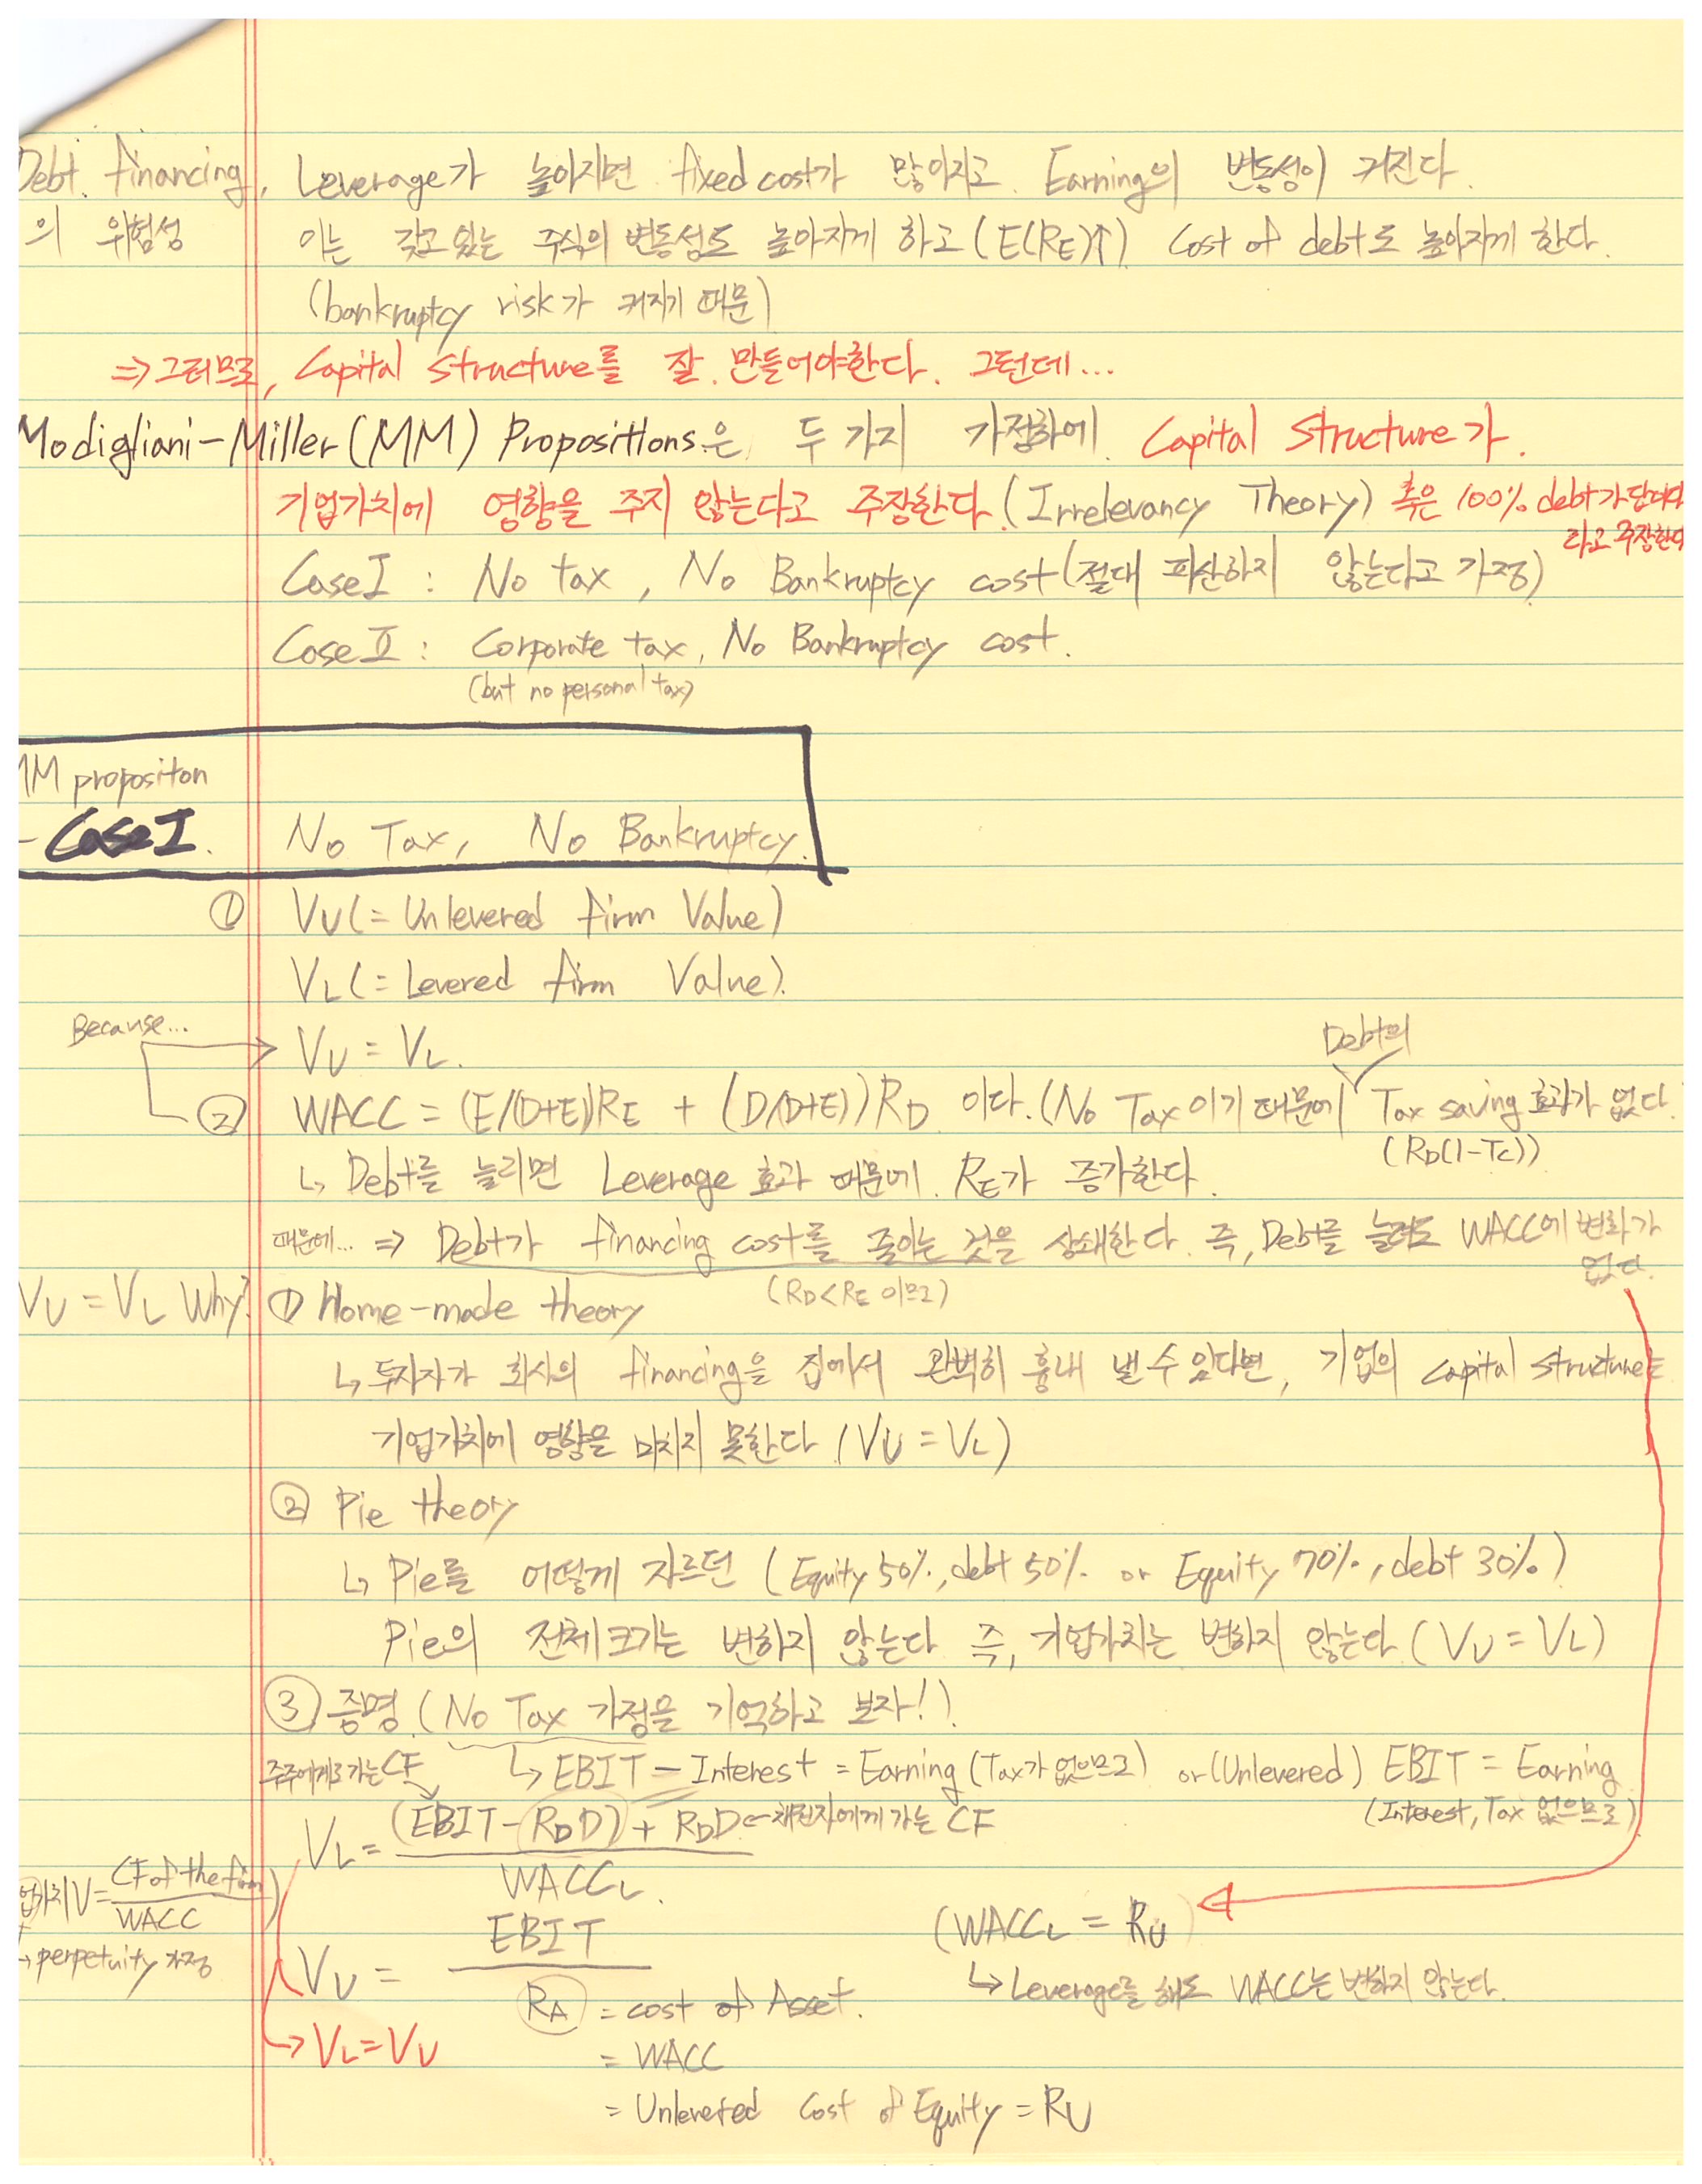 Debt financing, Leverage가 높아지면 fixed cost가 많아지고 Earning의 변동성이 커진다.
의 위험성 이는 갖고 있는 주식의 변동성도 높아지게 하고 (E(RE)↑) Cost of debt도 높아지게 한다.
(bankruptcy risk가 커지기 때문)
⇒ 그러므로, Capital Structure를 잘 만들어야한다. 그런데...
Modigliani-Miller (MM) Propositions은 두 가지 가정하에 Capital Structure가
기업가치에 영향을 주지 않는다고 주장한다 (Irrelevancy Theory) 혹은 100% debt가
라고 주장한다
Case I : No tax, No Bankruptcy cost (절대 파산하지 않는다고 가정)
Case II : Corporate tax, No Bankruptcy cost.
(but no personal tax)
MM propositon
- Case I. No Tax, No Bankruptcy.
① VU (= Unlevered firm Value)
VL (= Levered firm Value).
Because...
VU = VL.
Debt의
② WACC = (E/(D+E))RE + (D/(D+E))RD 이다. (No Tax 이기 때문에 Tax saving 효과가 없다.
(RD(1-TC))
↳ Debt를 늘리면 Leverage 효과 때문에 RE가 증가한다.
때문에... ⇒ Debt가 financing cost를 줄이는 것을 상쇄한다. 즉, Debt를 늘려도 WACC에 변화가
없다.
(RD<RE 이므로)
VU = VL Why? ① Home-made theory
↳ 투자자가 회사의 financing을 집에서 완벽히 흉내 낼 수 있다면, 기업의 capital structure는
기업가치에 영향을 미치지 못한다 (VU = VL)
② Pie theory
↳ Pie를 어떻게 자르던 (Equity 50%, debt 50% or Equity 70%, debt 30%)
Pie의 전체 크기는 변하지 않는다 즉, 기업가치는 변하지 않는다 (VU = VL)
③ 증명 (No Tax 가정을 기억하고 보자!).
주주에게로 가는 CF ↳ EBIT - Interest = Earning (Tax가 없으므로) or (Unlevered) EBIT = Earning
(Interest, Tax 없으므로)
VL = (EBIT - RDD) + RDD ← 채권자에게 가는 CF
WACCL.
업가치 V = CF of the firm
WACC
→ perpetuity 가정
(WACCL = RU)
↳ Leverage를 해도 WACC는 변하지 않는다.
VU = EBIT
RA = cost of Asset.
→ VL = VU
= WACC
= Unlevered Cost of Equity = RU